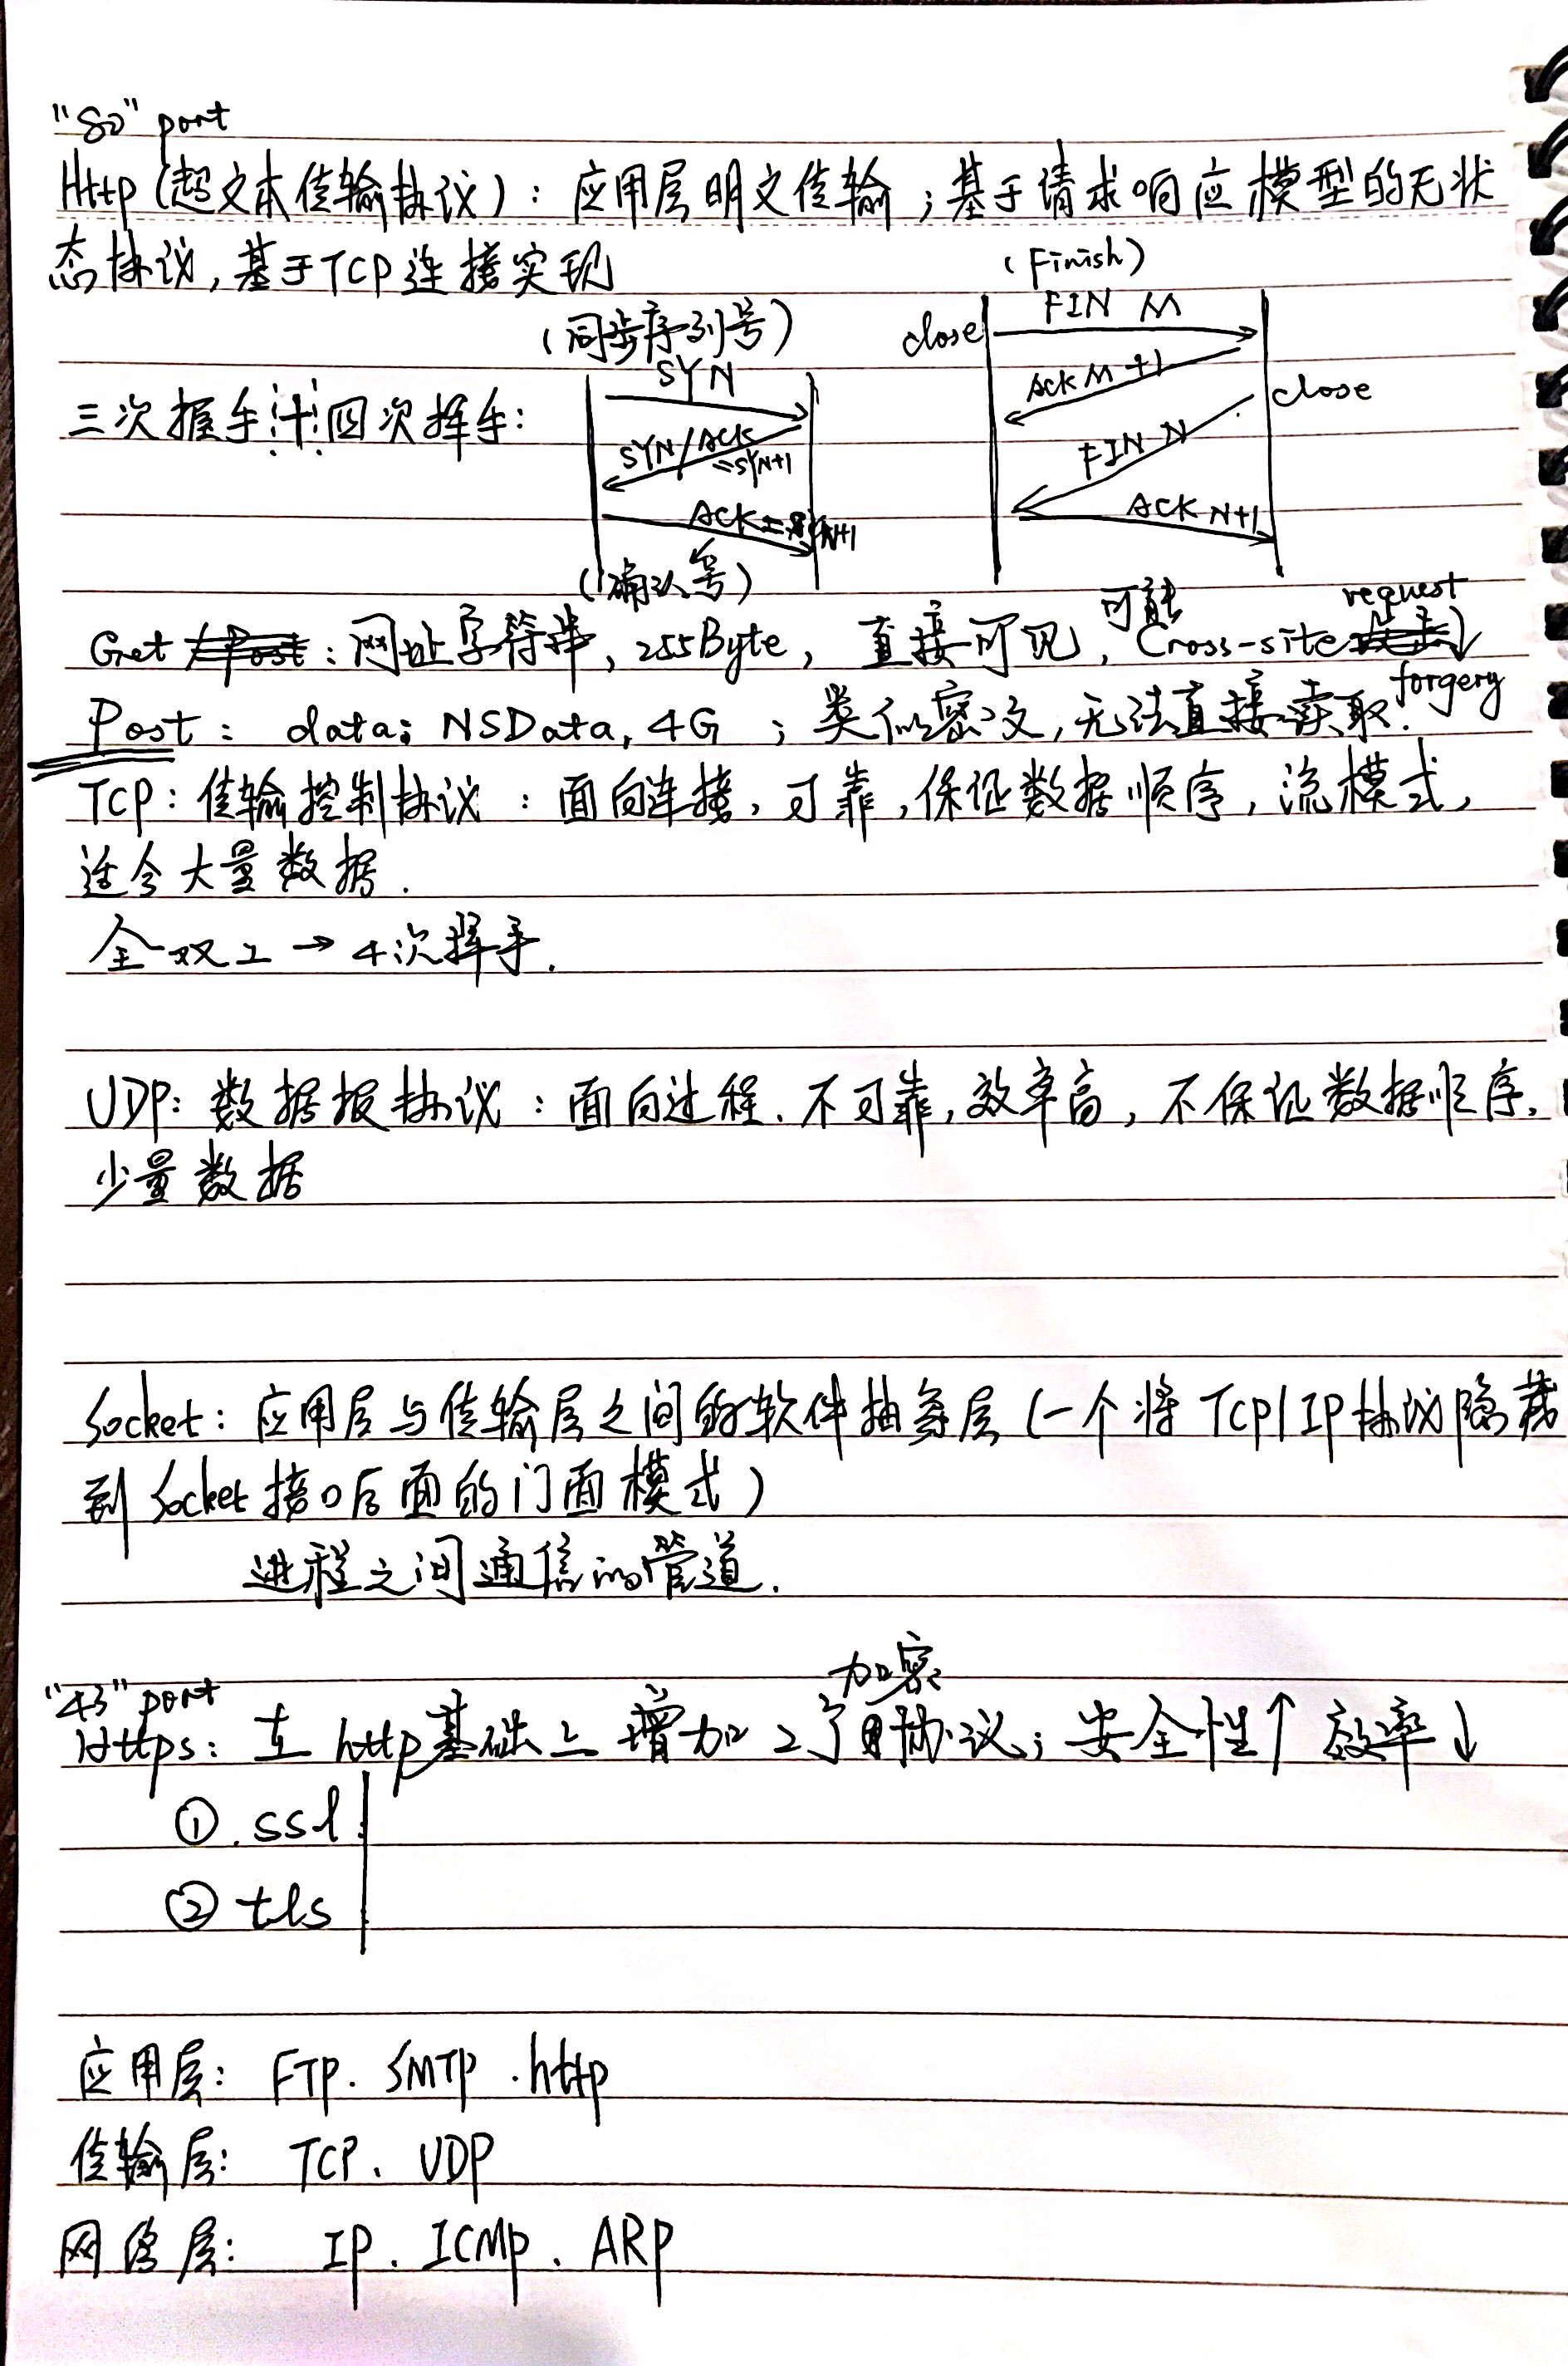 "80" port
Http (超文本传输协议)：应用层明文传输；基于请求响应模型的无状
态协议, 基于TCP连接实现
(Finish)
(同步序列号)
close FIN M
SYN
ACK M+1
close
三次握手 四次挥手:
SYN/ACK
=SYN+1
FIN N
ACK= N+1
ACK N+1
(确认号)
可能 request
Get : 网址字符串, 255Byte, 直接可见, Cross-site
forgery
Post : data; NSData, 4G ; 类似密文, 无法直接读取.
TCP: 传输控制协议：面向连接, 可靠, 保证数据顺序, 流模式,
适合大量数据.
全双工 → 4次挥手.
UDP: 数据报协议：面向过程. 不可靠, 效率高, 不保证数据顺序.
少量数据
Socket: 应用层与传输层之间的软件抽象层 (一个将 TCP/IP 协议隐藏
到 Socket 接口后面的门面模式)
进程之间通信的管道.
加密
"43" port
Https: 在 http 基础上 增加了 协议; 安全性↑ 效率↓
①. ssl
② tls
应用层: FTP. SMTP . http
传输层: TCP、UDP
网络层: IP . ICMP . ARP